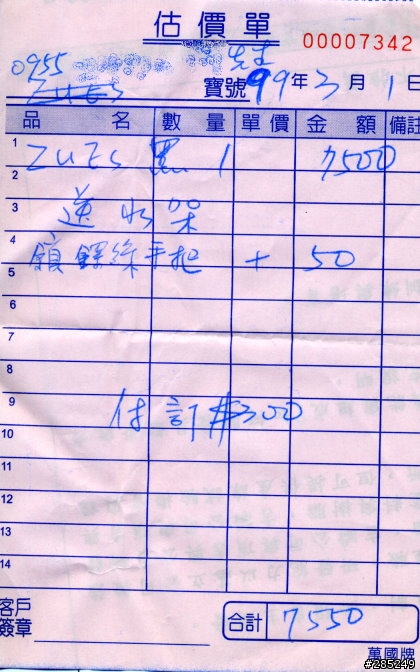 估價單
00007342
0955 先生
ZUES 寶號 99年3月1日
品名 數量 單價 金額 備註
1 ZUES 黑 1 7500
2
3 送水架
4 鐸綠手把 + 50
5
6
7
8
9 付訂 $300
10
11
12
13
14
客戶簽章 合計 7550
萬國牌
#285249